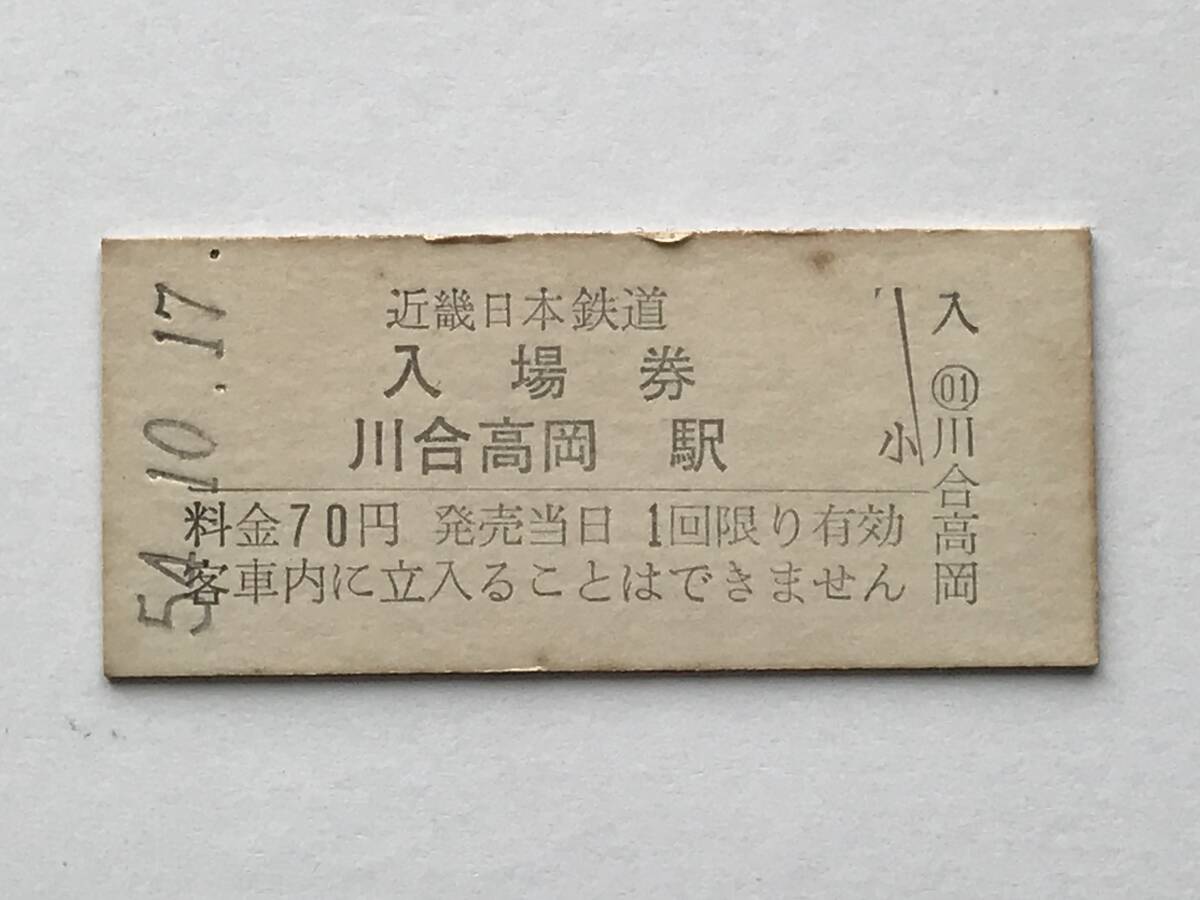 54.10.17.
近畿日本鉄道
入場券
川合高岡 駅
小
料金70円 発売当日 1回限り有効
客車内に立入ることはできません
入
01
川合高岡